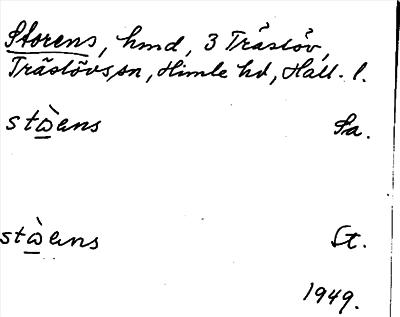 Storens, hmd, 3 Träslöv,
Träslövs sn, Himle hd, Hall. l.
stὼens Sa.
stὼens St.
1949.